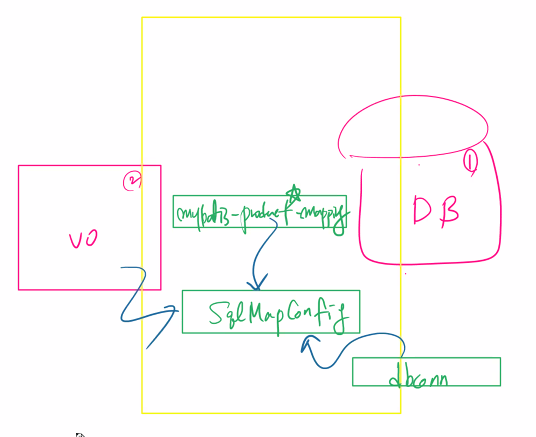 ①
②
DB
mybatis-product-mapping
VO
SqlMapConfig
dbconn